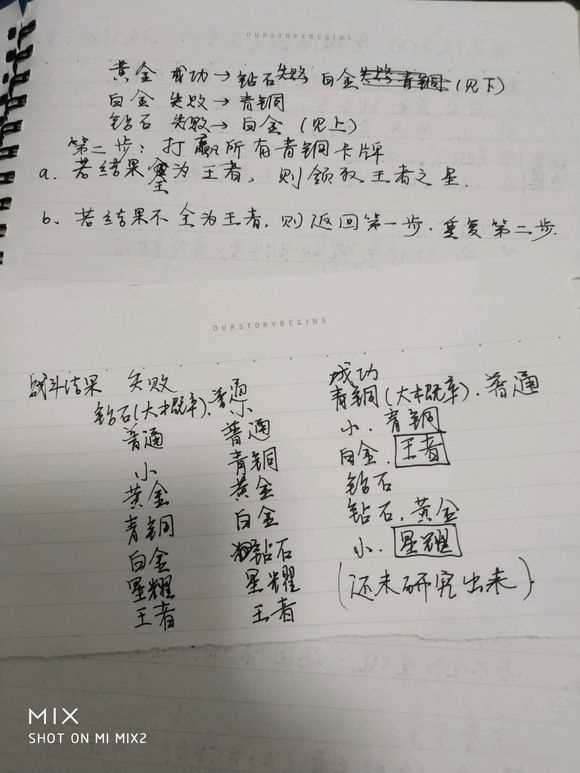 OURSTORYBEGINS
黄金 成功→钻石失败 白金失败青铜(见下)
白金 失败→青铜
钻石 失败→白金(见上)
第二步:打赢所有青铜卡牌
a. 若结果全为王者,则领取王者之星.
b. 若结果不全为王者,则返回第一步.重复第二步.
OURSTORYBEGINS
战斗结果 失败 成功
钻石(大概率).普通 青铜(大概率).普通
普通 小普通 小.青铜
小 青铜 白金.王者
黄金 黄金 钻石
青铜 白金 钻石.黄金
白金 钻石 小.星耀
星耀 星耀 (还未研究出来)
王者 王者
MIX
SHOT ON MI MIX2